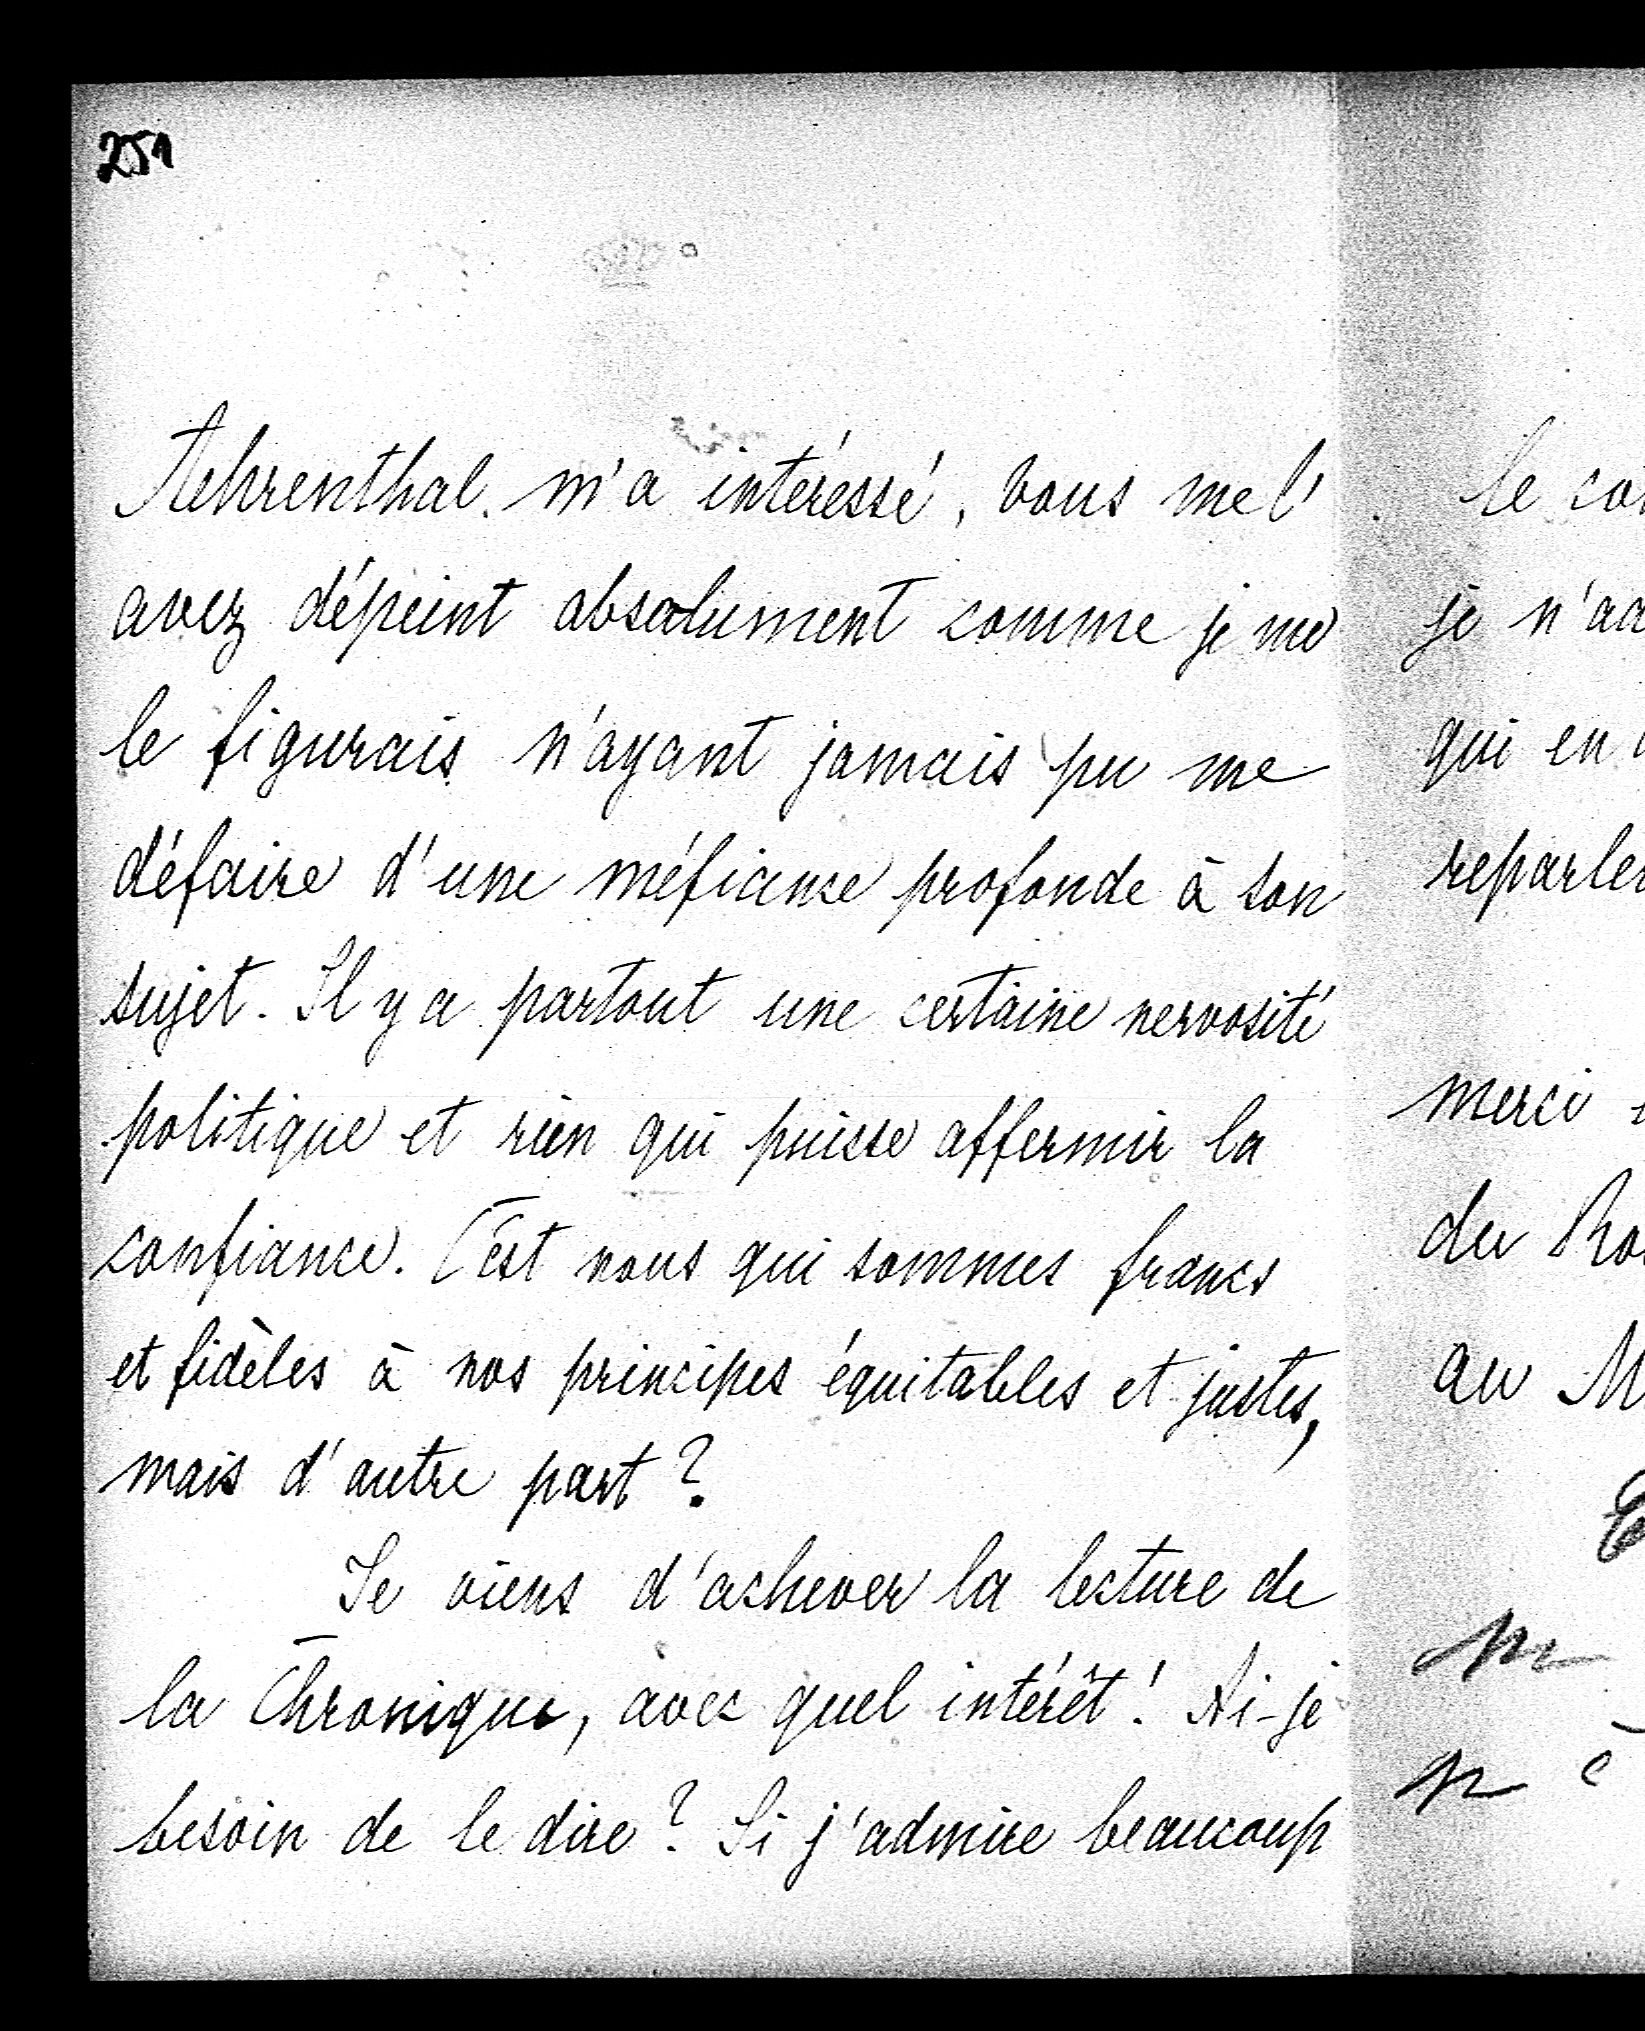 251
Aehrenthal m'a intéressé, vous me l'
avez dépeint absolument comme je me
le figurais n'ayant jamais pu me
défaire d'une méfiance profonde à son
sujet. Il y a partout une certaine nervosité
politique et rien qui puisse affermir la
confiance. C'est nous qui sommes francs
et fidèles à nos principes équitables et justes,
mais d'autre part ?
Je viens d'achever la lecture de
la Chronique, avec quel intérêt ! Ai-je
besoin de le dire ? Si j'admire beaucoup
le
je
qui en
merci
du
au